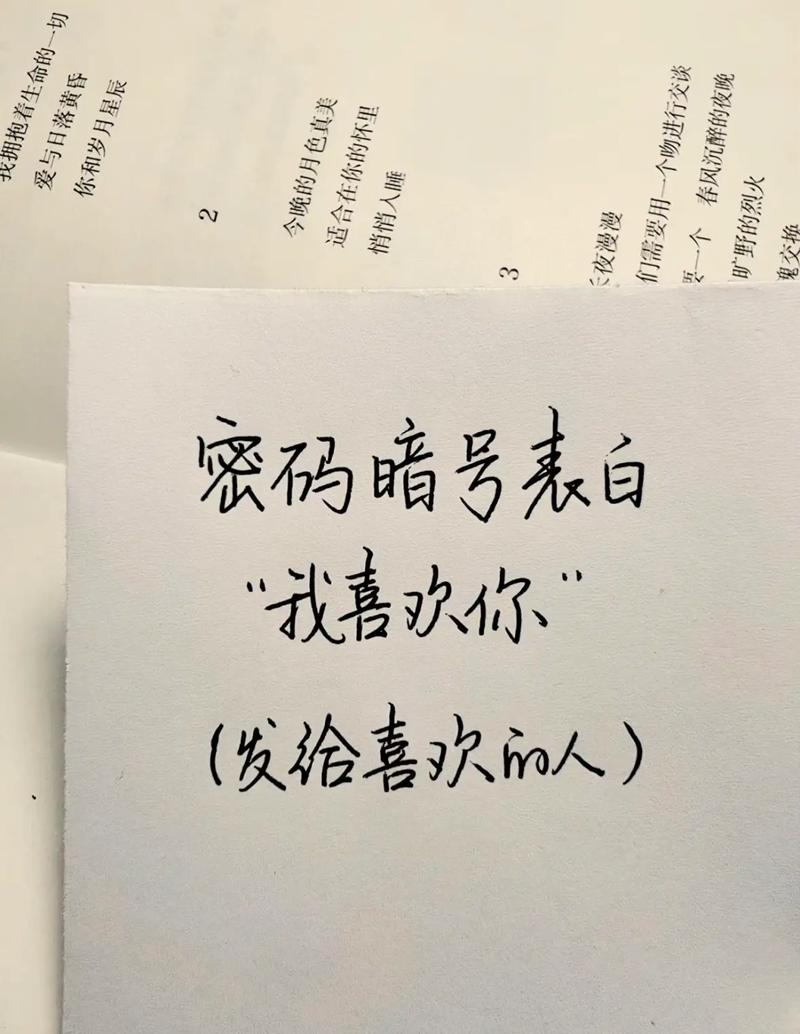 我拥抱着生命的一切
爱与日落黄昏
你和岁月星辰
2
今晚的月色真美
适合在你的怀里
悄悄入睡
3
长夜漫漫
们需要用一个吻进行交谈
要一个 春风沉醉的夜晚
旷野的烈火
魂交换
密码暗号表白
“我喜欢你”
(发给喜欢的人)